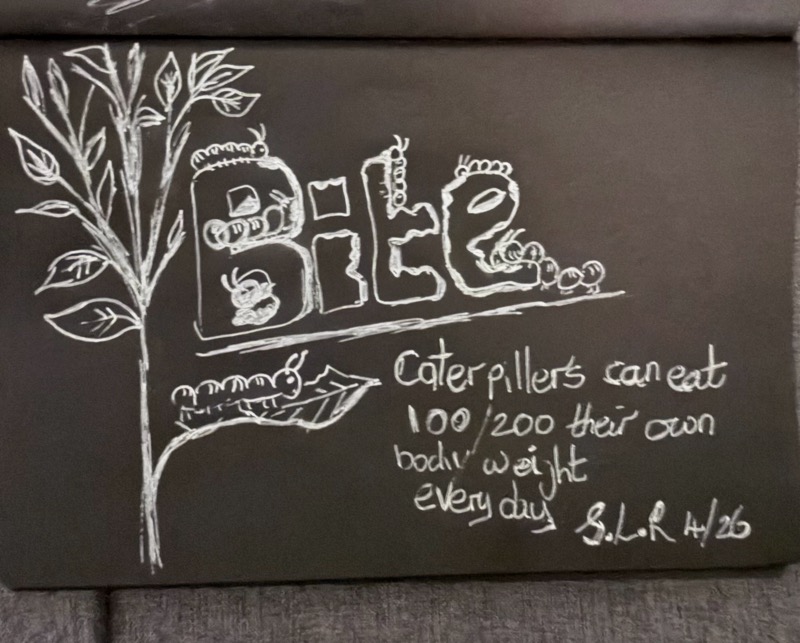 Bite
Caterpillers can eat
100/200 their own
body weight
every day
S.L.R 4/26